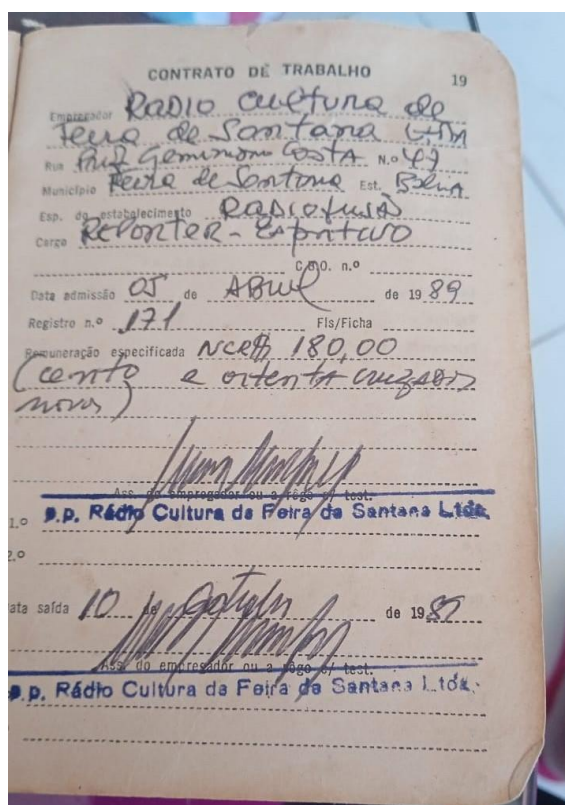 CONTRATO DE TRABALHO 19
Empregador RADIO CULTURA DE
Feira de Santana LTDA
Rua Geminiano COSTA N.o 49
Município Feira de Santana Est. BAHIA
Esp. do estabelecimento RADIOFUSÃO
Cargo REPORTER - ESPORTIVO
C.B.O. n.o
Data admissão 05 de ABRIL de 19 89
Registro n.o 171 Fls/Ficha
Remuneração especificada NCR$ 180,00
(cento e oitenta cruzados
novos)
Ass. do empregador ou a rôgo c/ test.
p.p. Rádio Cultura de Feira de Santana Ltda.
1.o
2.o
ata saída 10 de de 19 89
Ass. do empregador ou a rôgo c/ test.
p.p. Rádio Cultura de Feira de Santana Ltda.